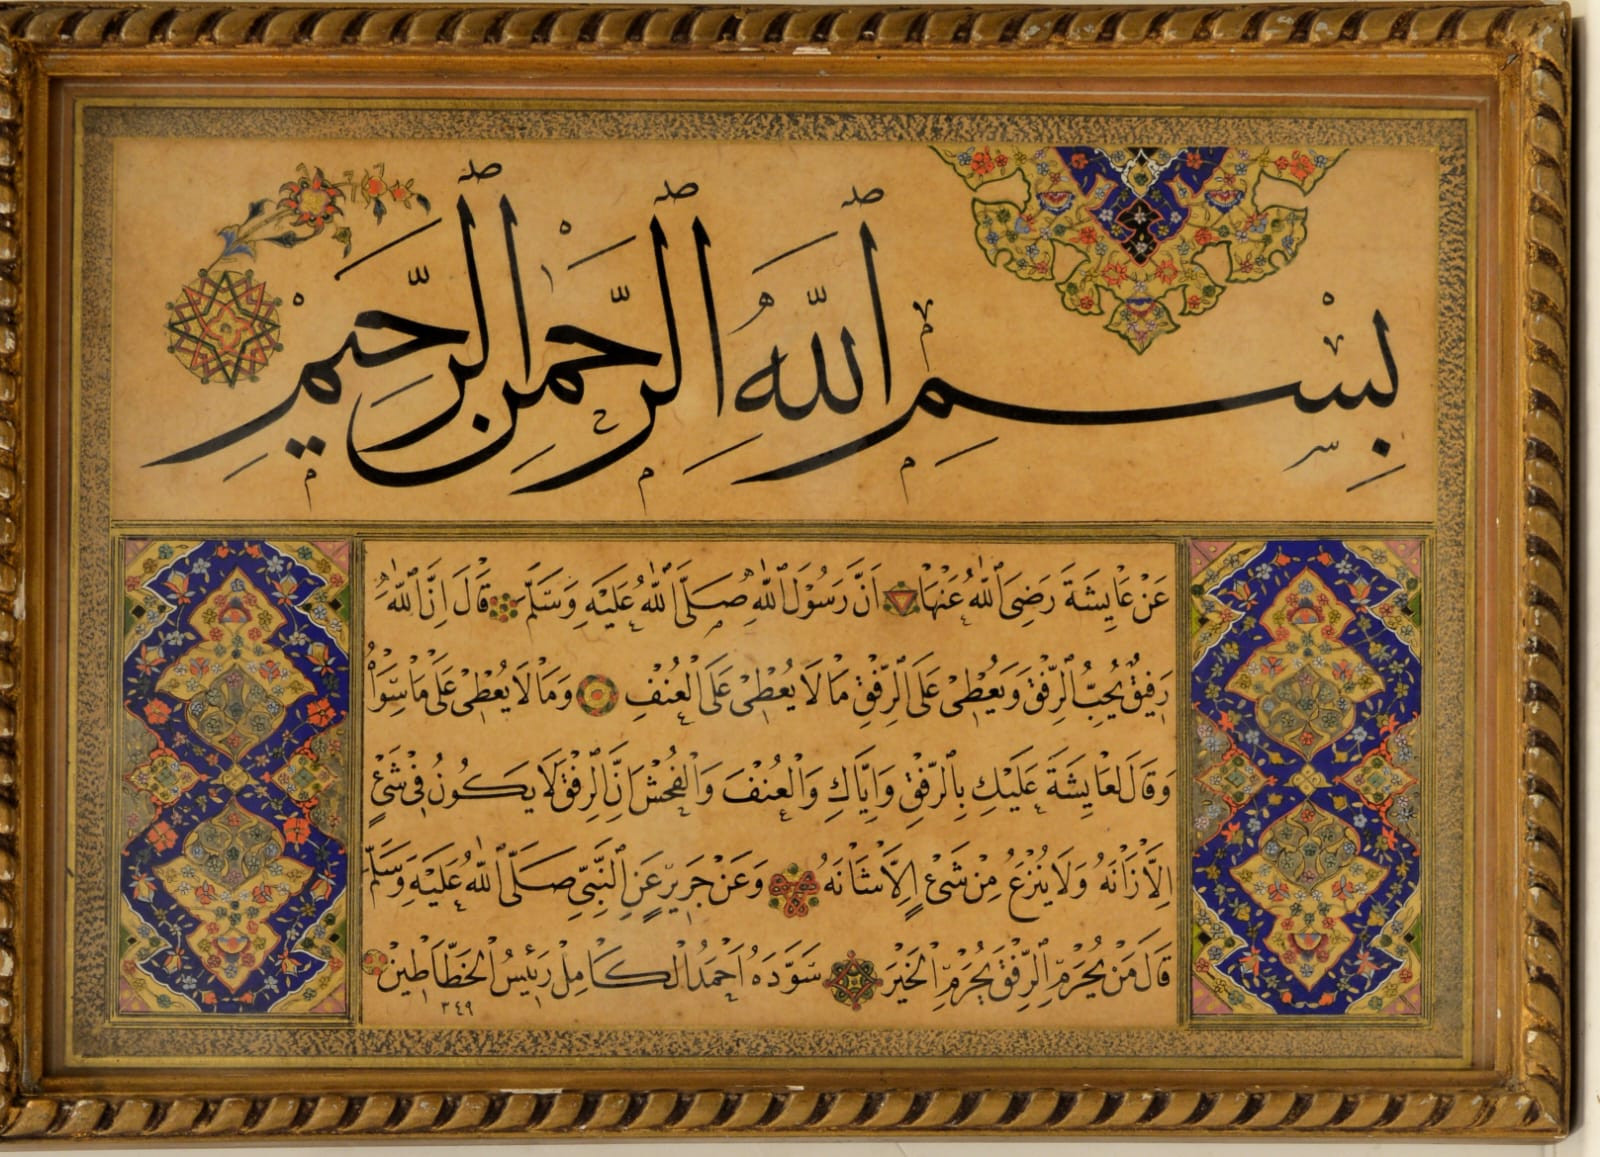 بِسْمِ ٱللّٰهِ ٱلرَّحْمٰنِ ٱلرَّحِيمِ
عَنْ عَايِشَةَ رَضِىَ ٱللّٰهُ عَنْهَا اَنَّ رَسُولَ ٱللّٰهِ صَلَّى ٱللّٰهُ عَلَيْهِ وَسَلَّمَ قَالَ اِنَّ ٱللّٰهَ
رَفِيقٌ يُحِبُّ ٱلرِّفْقَ وَيُعْطِى عَلَى ٱلرِّفْقِ مَا لَا يُعْطِى عَلَى ٱلْعُنْفِ وَمَا لَا يُعْطِى عَلَى مَا سِوَاهُ
وَقَالَ لِعَايِشَةَ عَلَيْكِ بِٱلرِّفْقِ وَاِيَّاكِ وَٱلْعُنْفَ وَٱلْفُحْشَ اِنَّ ٱلرِّفْقَ لَا يَكُونُ فِى شَىْءٍ
اِلَّا زَانَهُ وَلَا يُنْزَعُ مِنْ شَىْءٍ اِلَّا شَانَهُ وَعَنْ جَرِيرٍ عَنِ ٱلنَّبِىِّ صَلَّى ٱللّٰهُ عَلَيْهِ وَسَلَّمَ
قَالَ مَنْ يُحْرَمِ ٱلرِّفْقَ يُحْرَمِ ٱلْخَيْرَ سَوَّدَهُ اَحْمَدُ ٱلْكَامِلْ رَئِيسُ ٱلْخَطَّاطِينْ
١٣٤٩